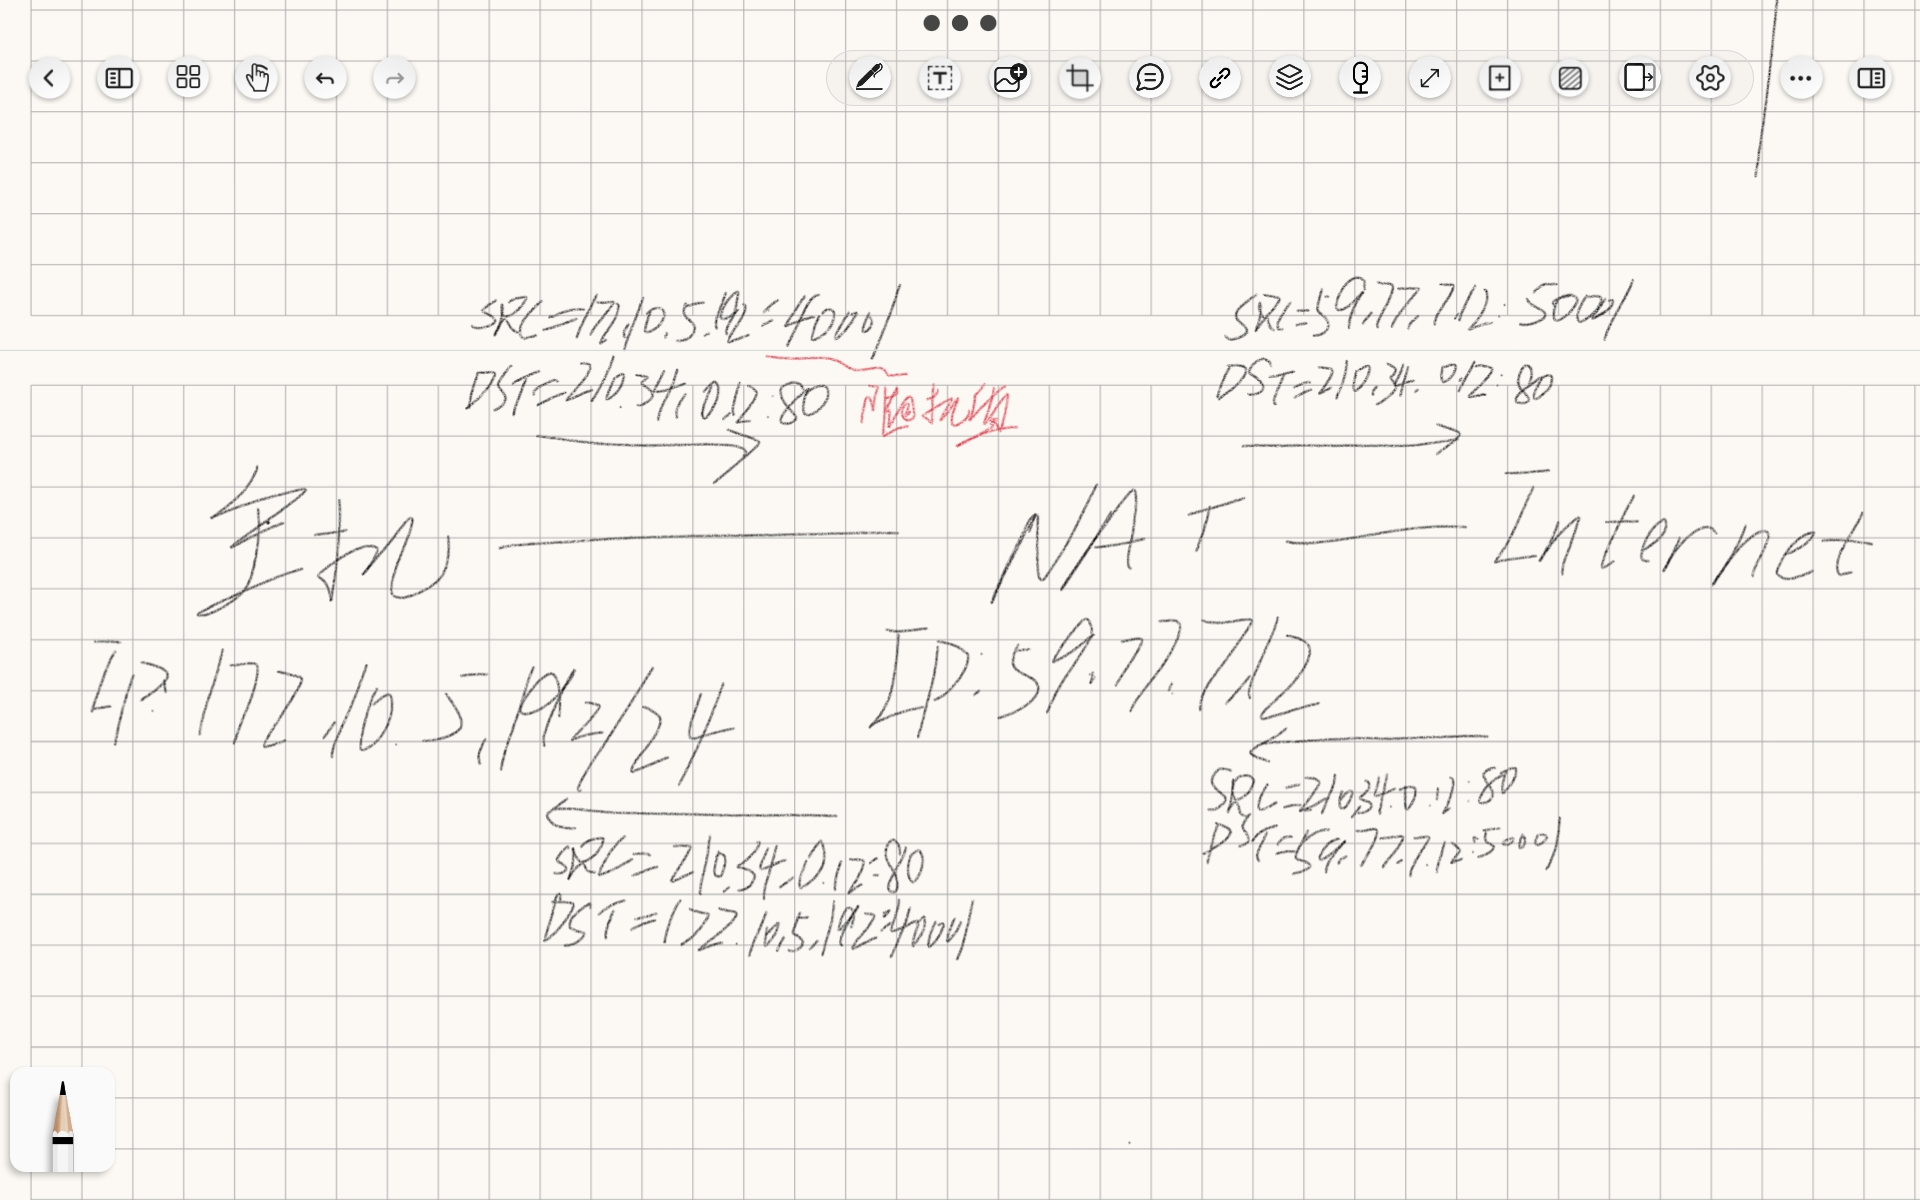 SRC=172.10.5.192:40001
DST=210.34.0.12:80
随机值
SRC=59.77.7.12:50001
DST=210.34.0.12:80
主机
NAT
Internet
IP:172.10.5.192/24
IP:59.77.7.12
SRC=210.34.0.12:80
DST=59.77.7.12:50001
SRC=210.34.0.12:80
DST=172.10.5.192:40001